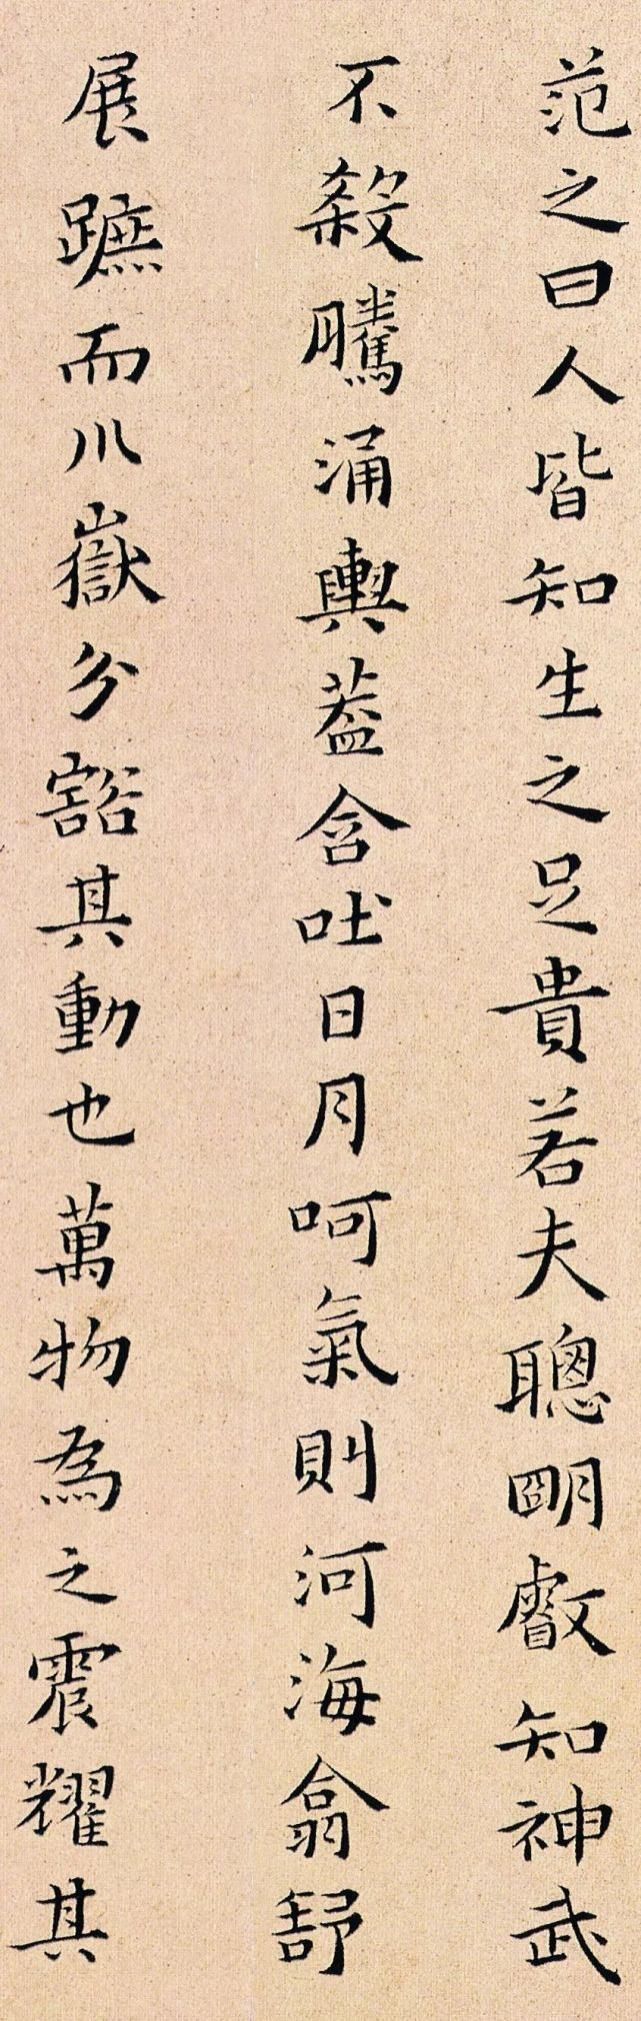 范之曰人皆知生之足貴若夫聰明叡知神武
不殺騰涌輿葢含吐日月呵氣則河海翕舒
展蹠而川嶽分豁其動也萬物為之震耀其